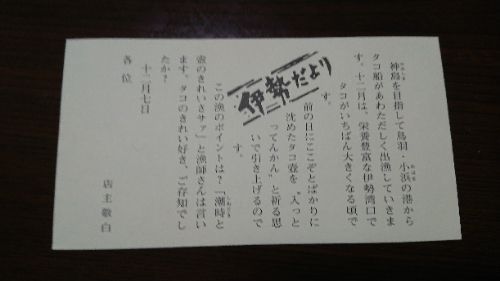 神島を目指して鳥羽・小浜の港から
タコ船があわただしく出漁していきま
す。十二月は、栄養豊富な伊勢湾口で
タコがいちばん大きくなる頃で
す。
伊勢だより
前の日にここぞとばかりに
沈めたタコ壺を〝入っと
ってんかん〟と祈る思
いで引き上げるので
す。
この漁のポイントは？「潮時と
壺のきれいさサァ」と漁師さんは言い
ます。タコのきれい好き、ご存知でし
たか？
十二月七日
店主敬白
各位